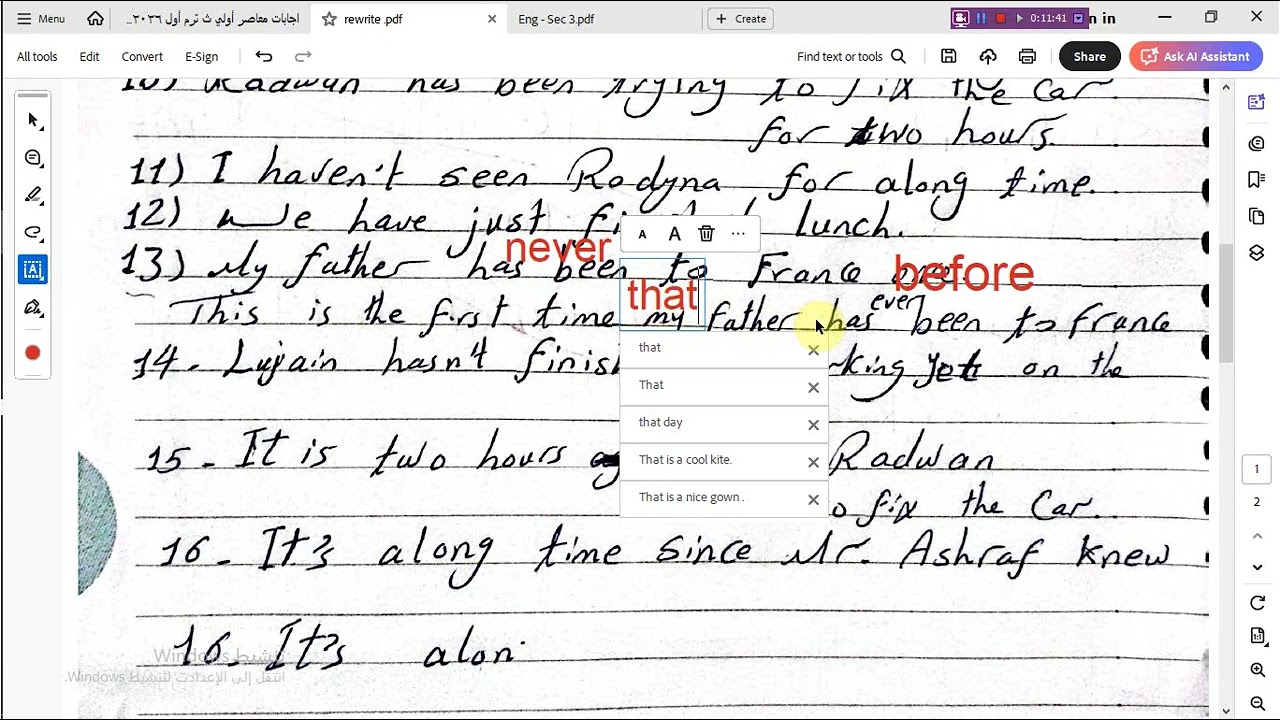 Menu
اجابات معاصر أولي ث ترم أول ٢٠٢٦...
rewrite .pdf
Eng - Sec 3.pdf
Create
0:11:41
n in
All tools Edit Convert E-Sign
Find text or tools
Share
Ask AI Assistant
10) Radwan has been trying to fix the car
for two hours.
11) I haven't seen Rodyna for along time.
12) We have just lunch.
never
13) My father has been to France
before
that
This is the first time my father has ever been to France
14. Lujain hasn't finish king yet on the
that
That
that day
That is a cool kite.
That is a nice gown .
15 - It is two hours Radwan
o fix the Car.
16 - It's along time since Mr. Ashraf knew
16. It's alon
تنشيط Windows
انتقل إلى الإعدادات لتنشيط Windows.
1
2